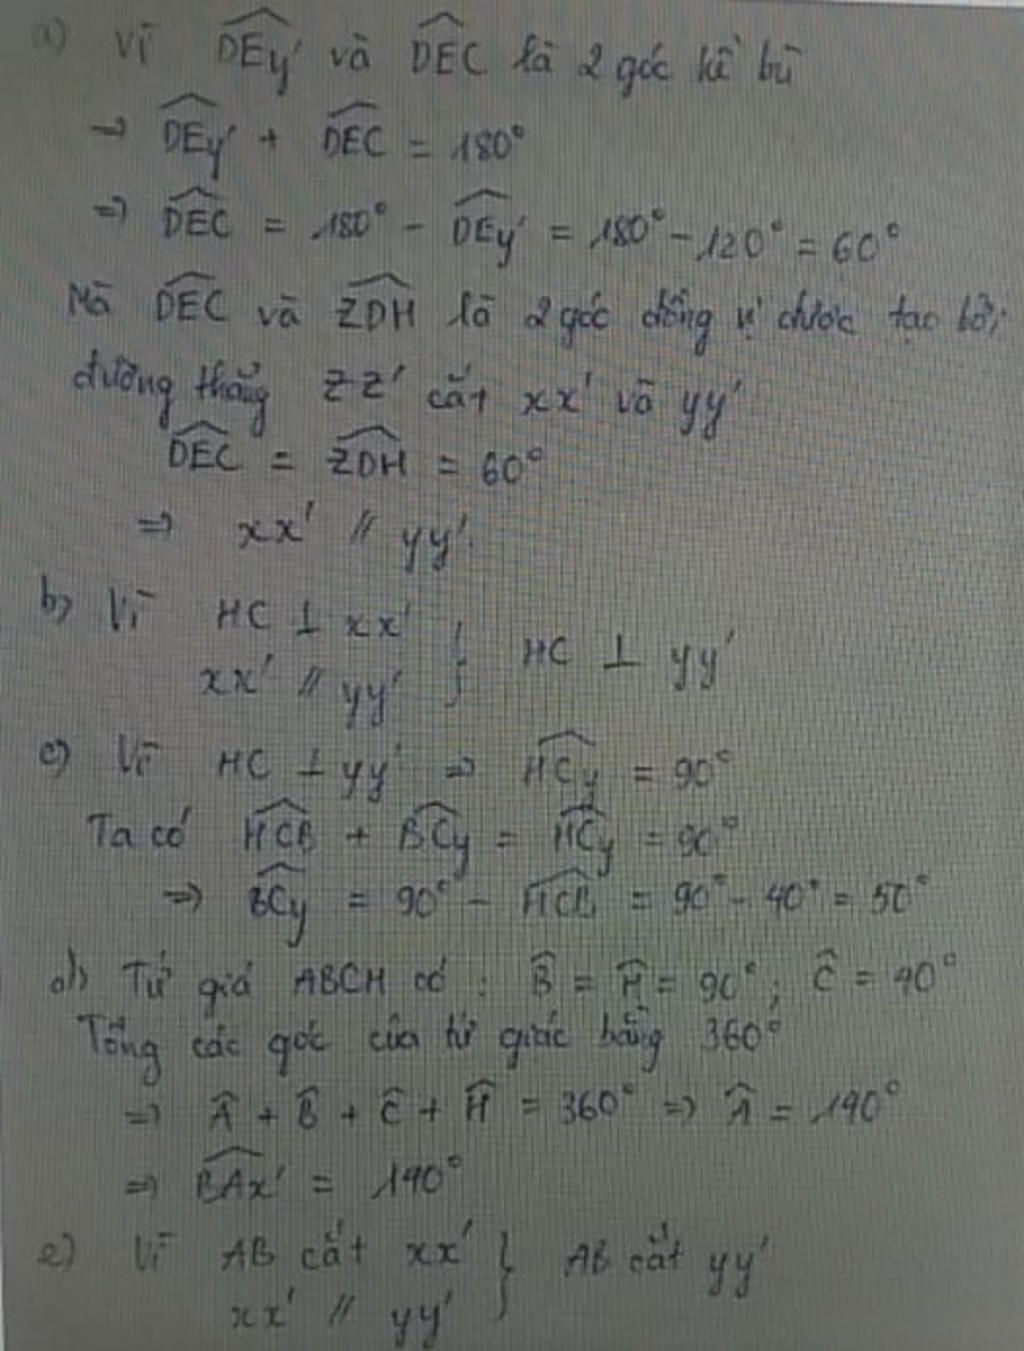 a) Vì DEy' và DEC là 2 góc kề bù
⇒ DEy' + DEC = 180°
⇒ DEC = 180° - DEy' = 180° - 120° = 60°
Mà DEC và ZDH là 2 góc đồng vị được tạo bởi
đường thẳng ZZ' cắt xx' và yy'
DEC = ZDH = 60°
⇒ xx' // yy'.
b) Vì HC ⊥ xx' } HC ⊥ yy'
xx' // yy'
c) Vì HC ⊥ yy' ⇒ HCy = 90°
Ta có HCB + BCy = HCy = 90°
⇒ BCy = 90° - HCB = 90° - 40° = 50°
d) Tứ giá ABCH có : B̂ = Ĥ = 90° ; Ĉ = 40°
Tổng các góc của tứ giác bằng 360°
⇒ Â + B̂ + Ĉ + Ĥ = 360° ⇒ Â = 140°
⇒ BAx' = 140°
e) Vì AB cắt xx' } AB cắt yy'
xx' // yy'